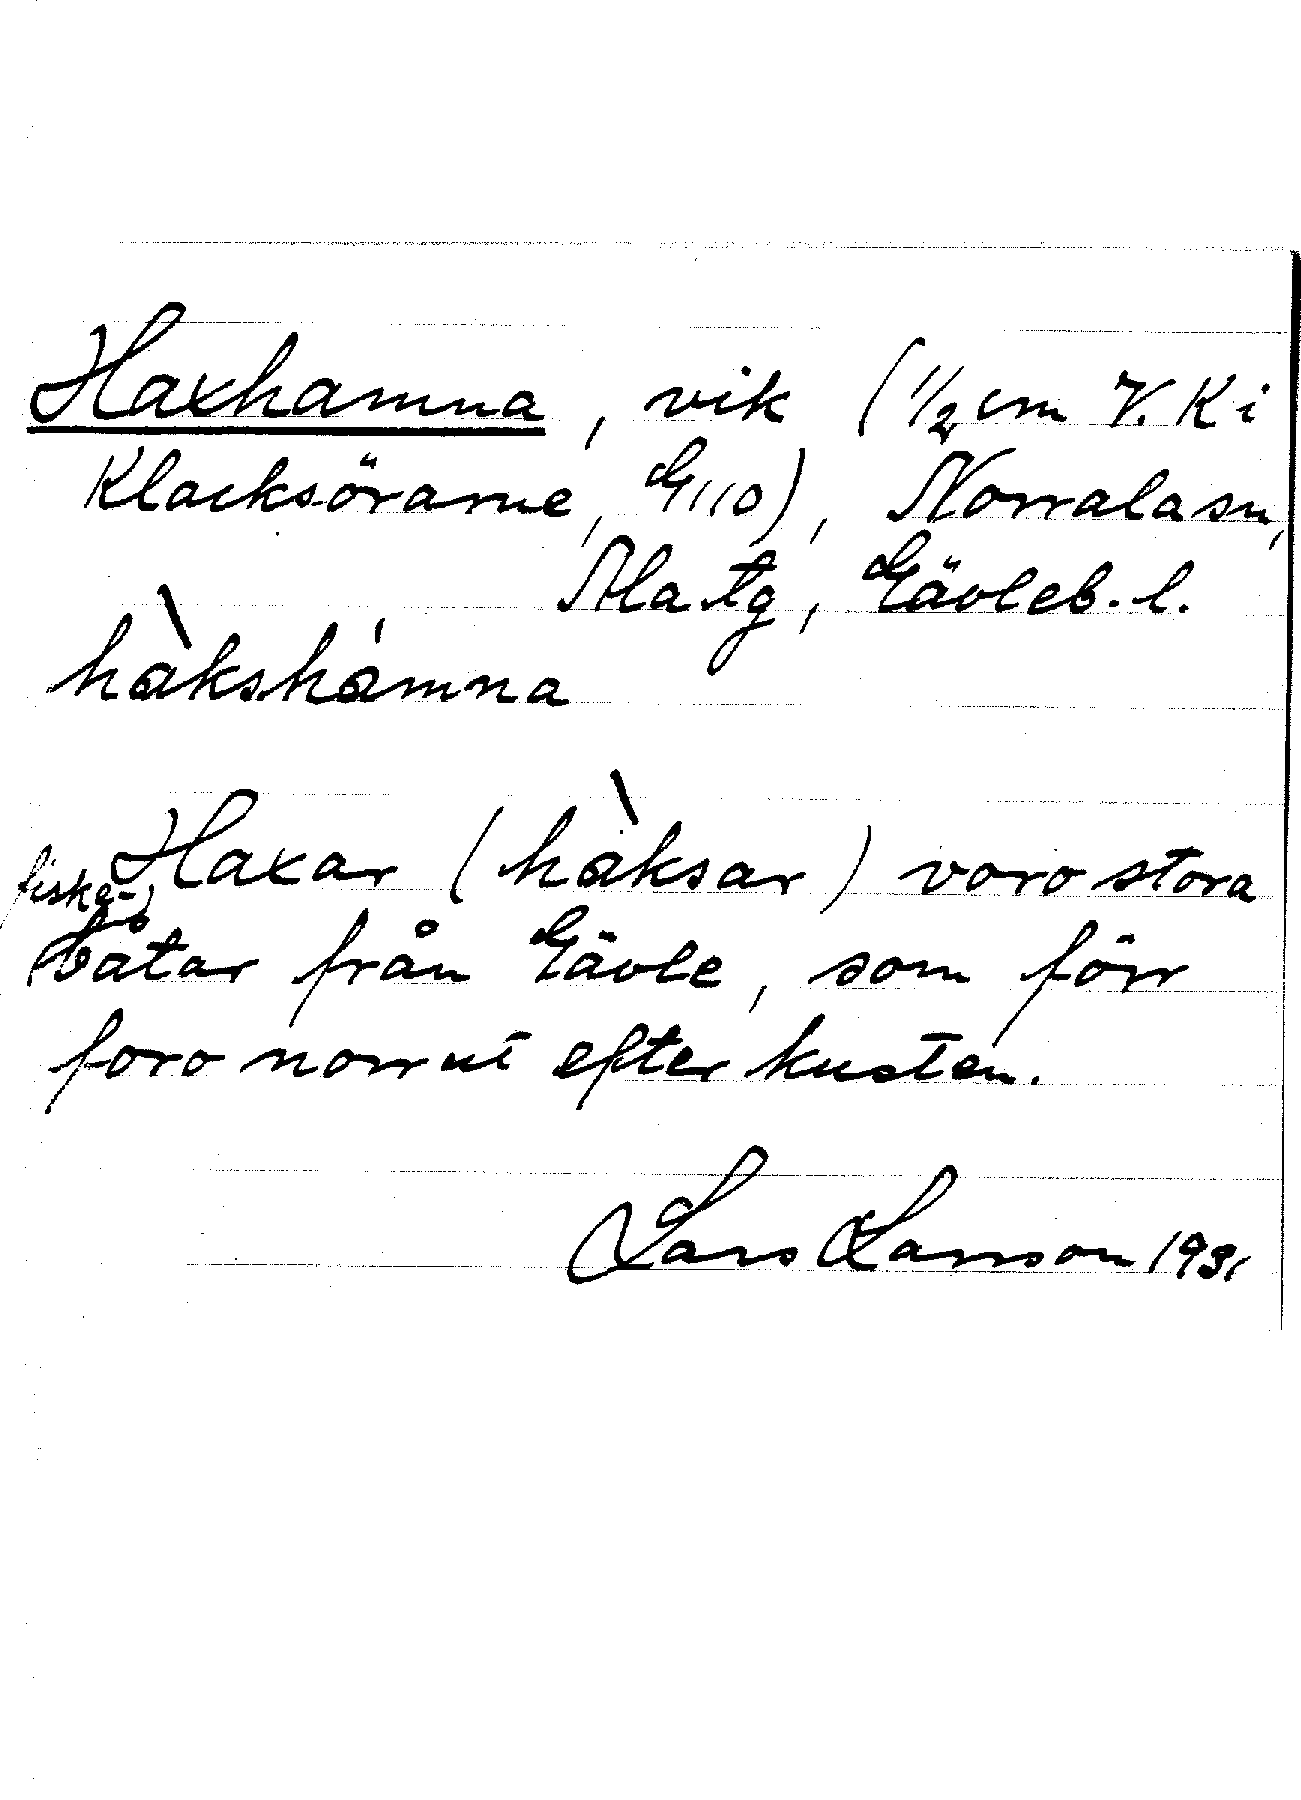 Haxhamna, vik (1/2 cm V. K i
Klacksörarne, G 110), Norrala sn,
Ala tg, Gävleb. l.
hàkshámna
Haxar (hàksar) voro stora
fiske-
båtar från Gävle, som förr
foro norrut efter kusten.
Lars Larsson 1931